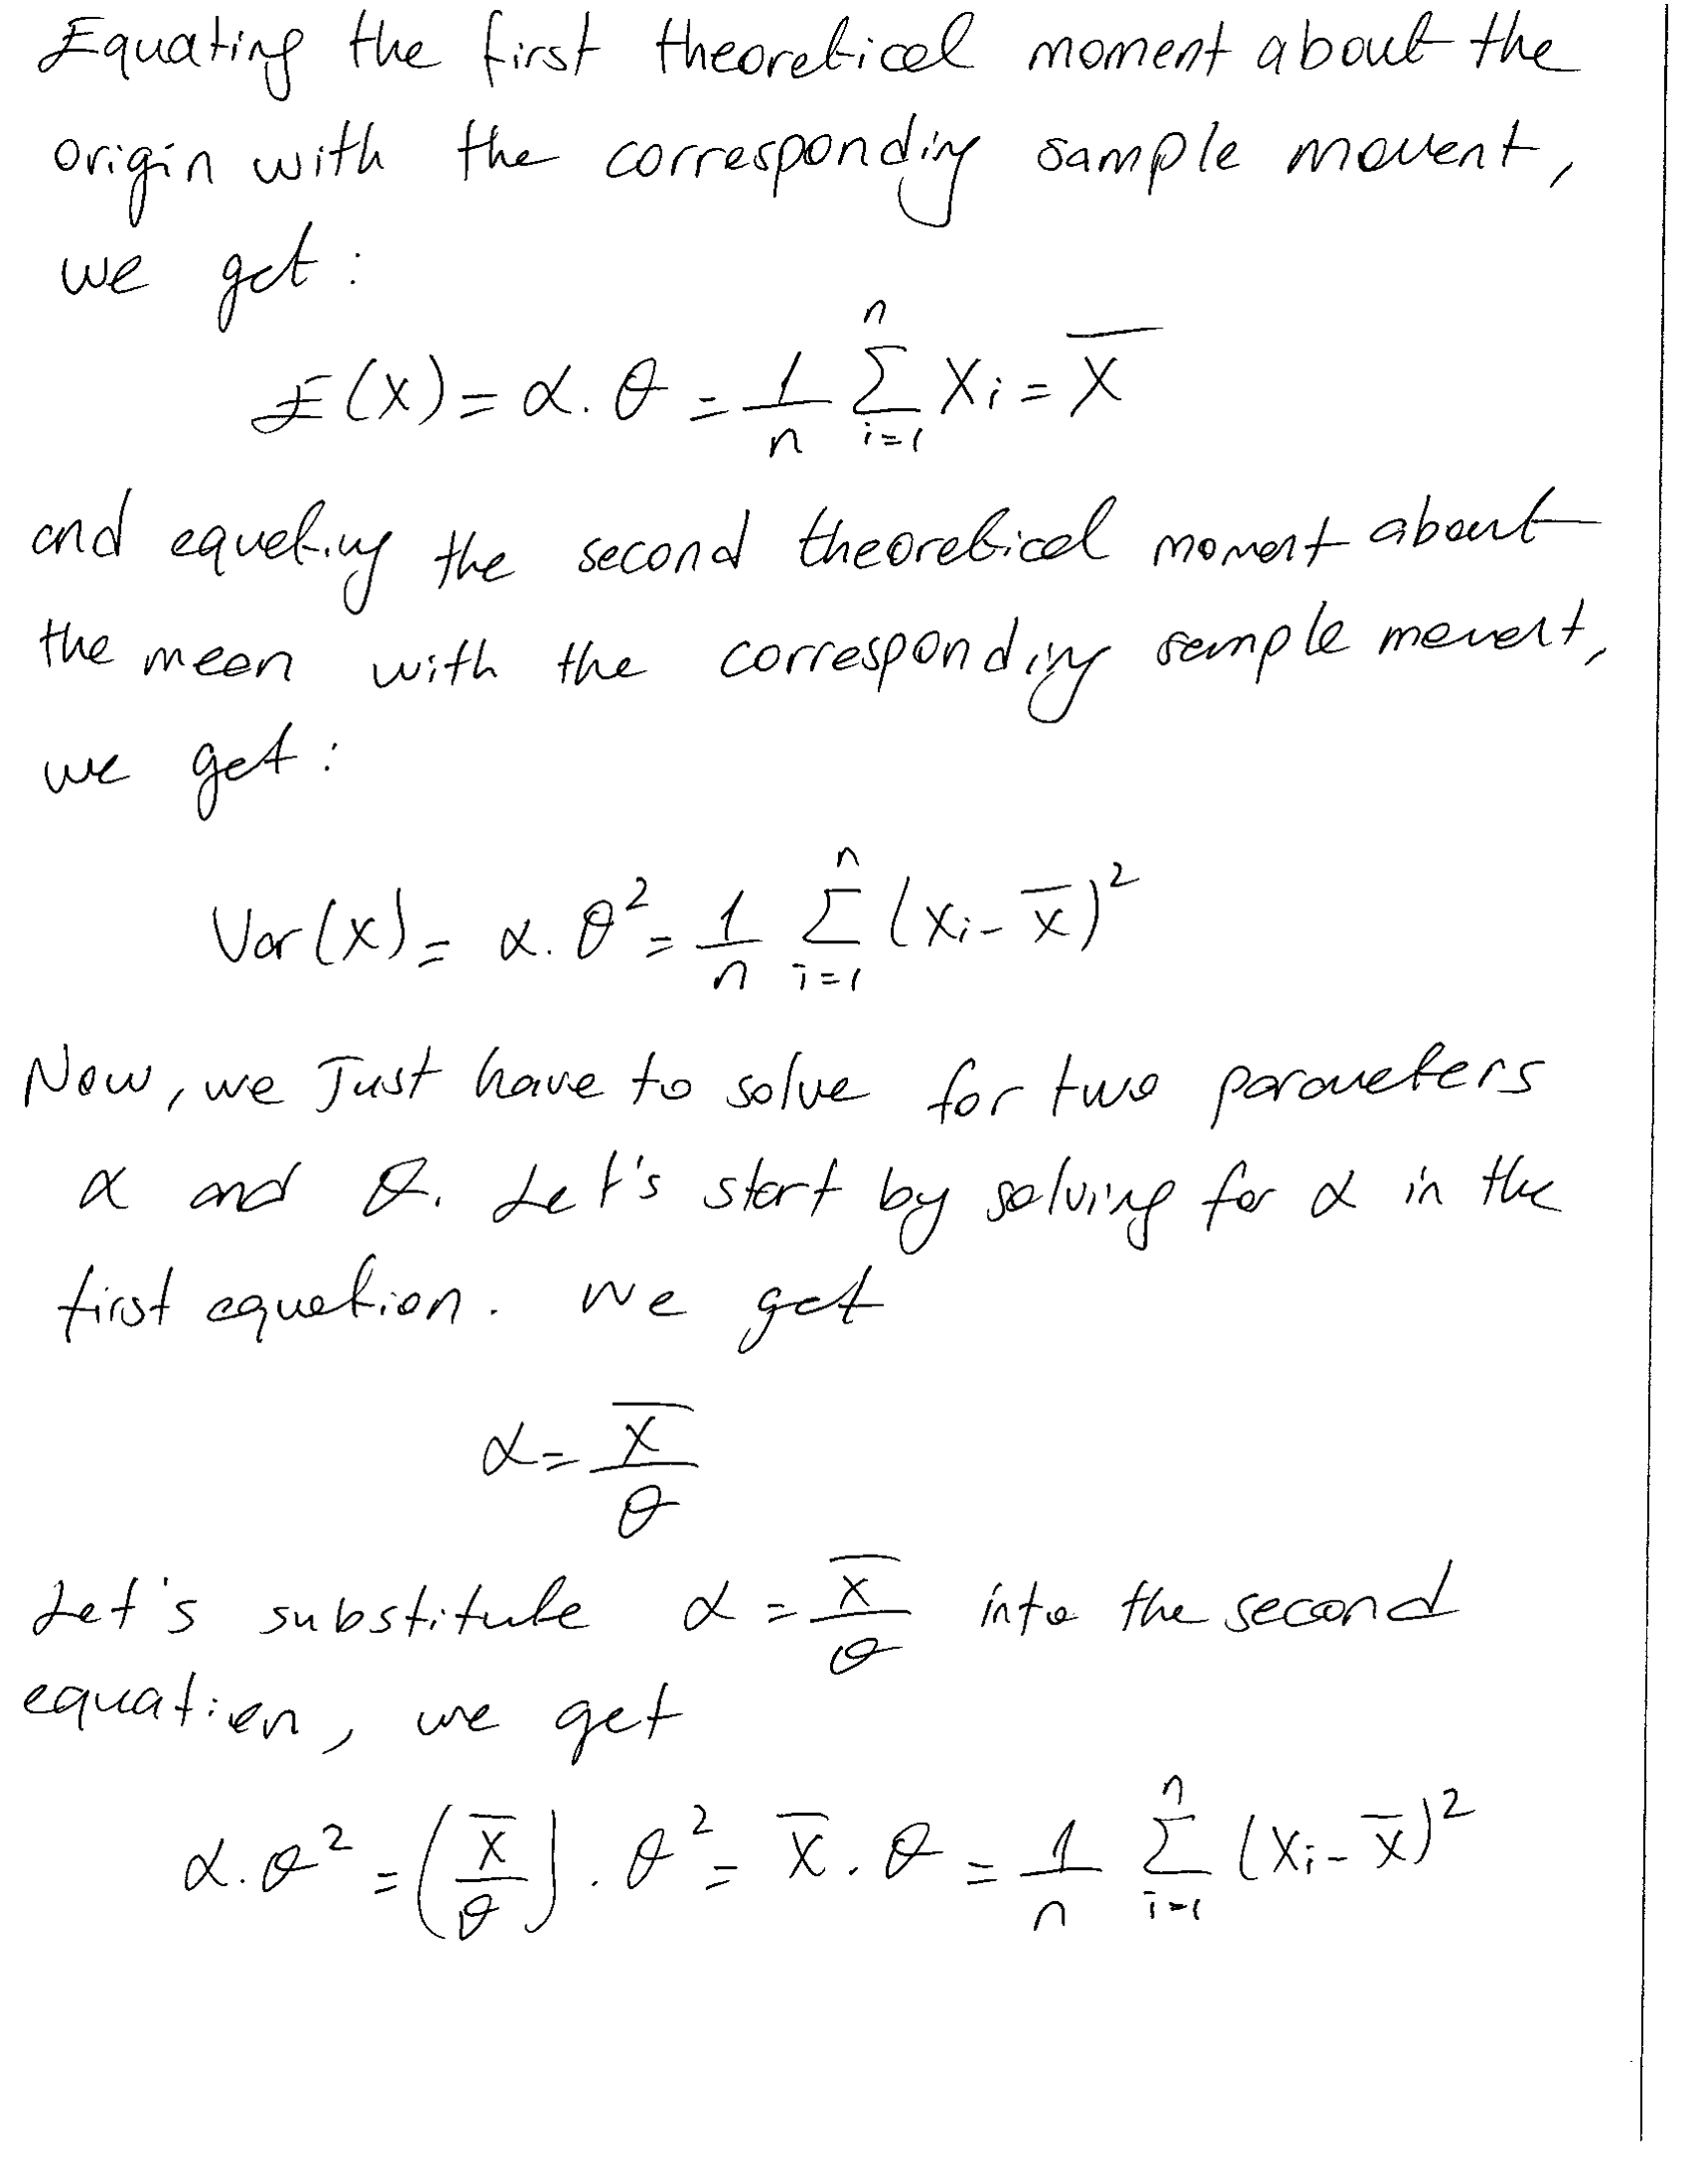 Equating the first theoretical moment about the
origin with the corresponding sample moment,
we get:
E(X) = α. θ = 1/n Σ_{i=1}^{n} Xi = X̄
and equating the second theoretical moment about
the mean with the corresponding sample moment,
we get:
Var(X) = α. θ² = 1/n Σ_{i=1}^{n} (Xi - X̄)²
Now, we Just have to solve for two parameters
α and θ. Let's start by solving for α in the
first equation. We get
α = X̄/θ
Let's substitute α = X̄/θ into the second
equation, we get
α. θ² = (X̄/θ). θ² = X̄. θ = 1/n Σ_{i=1}^{n} (Xi - X̄)²